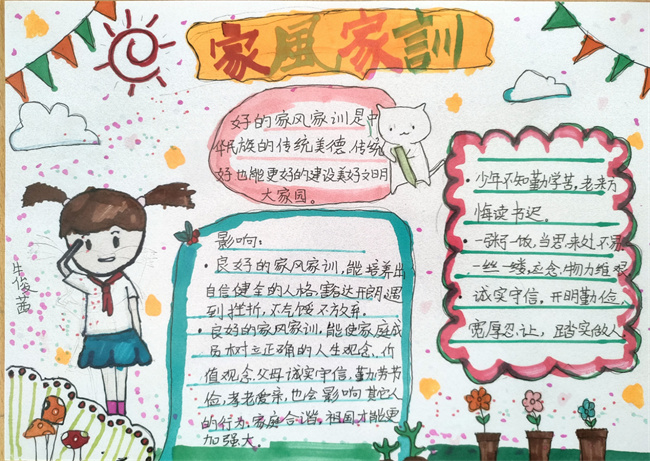 家風家訓
好的家风家训是中
华民族的传统美德,传统
好也能更好的建设美好文明
大家园。
影响:
·良好的家风家训,能培养出
自信健全的人格,豁达开朗,遇
到挫折,不气馁不放弃。
·良好的家风家训,能使家庭成
员树立正确的人生观念、价
值观念。父母诚实守信,勤劳节
俭,孝老爱亲,也会影响其它人
的行为,家庭合谐,祖国才能更
加强大。
·少年不知勤学苦,老来方
悔读书迟。
·一粥一饭,当思来处不易
一丝一缕,应念物力维艰
·诚实守信,开明勤俭,
宽厚忍让,踏实做人
牛俊茜